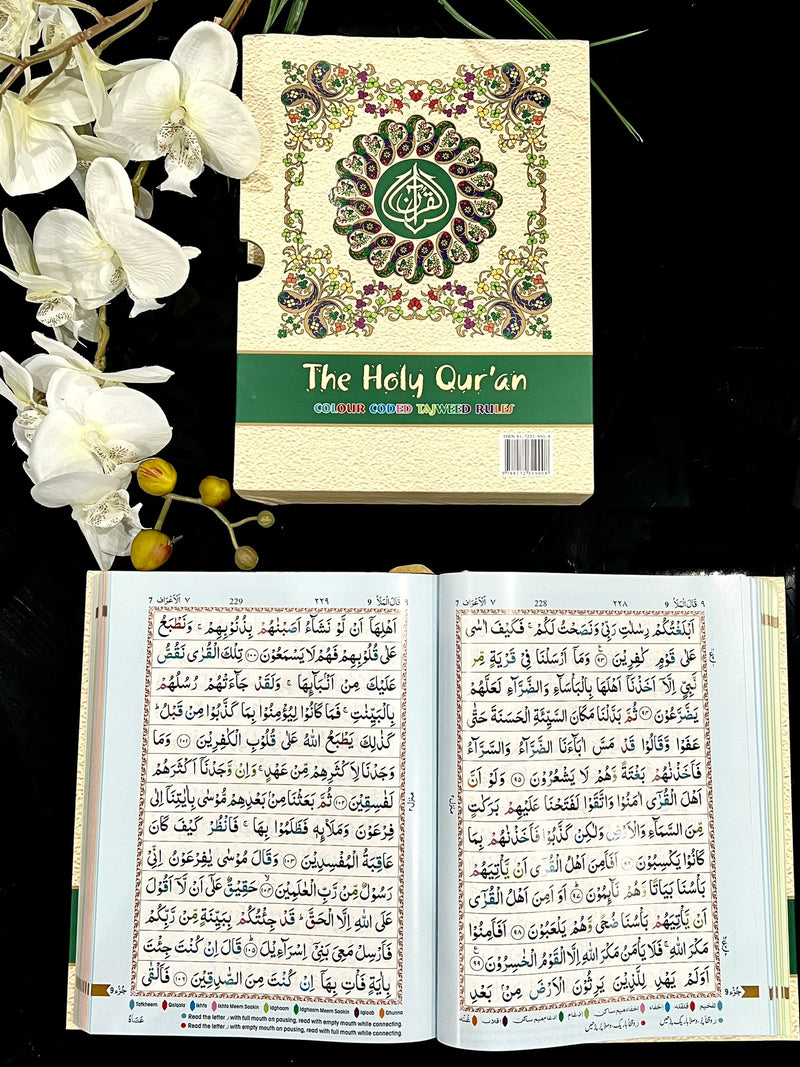 القرآن
The Holy Qur'an
COLOUR CODED TAJWEED RULES
٩ قَالَ الْمَلَاُ 9
٢٢٨
228
٧ اَلْاَعْرَاف 7
اَبْلَغْتُكُمْ رِسٰلٰتِ رَبِّیْ وَنَصَحْتُ لَكُمْ ۚ فَكَیْفَ اٰسٰی
عَلٰی قَوْمٍ كٰفِرِیْنَ ۝٩٣ وَمَاۤ اَرْسَلْنَا فِیْ قَرْیَةٍ مِّنْ
نَّبِیٍّ اِلَّاۤ اَخَذْنَاۤ اَهْلَهَا بِالْبَاْسَآءِ وَالضَّرَّآءِ لَعَلَّهُمْ
یَضَّرَّعُوْنَ ۝٩٤ ثُمَّ بَدَّلْنَا مَكَانَ السَّیِّئَةِ الْحَسَنَةَ حَتّٰی
عَفَوْا وَّقَالُوْا قَدْ مَسَّ اٰبَآءَنَا الضَّرَّآءُ وَالسَّرَّآءُ
فَاَخَذْنٰهُمْ بَغْتَةً وَّهُمْ لَا یَشْعُرُوْنَ ۝٩٥ وَلَوْ اَنَّ
اَهْلَ الْقُرٰۤی اٰمَنُوْا وَاتَّقَوْا لَفَتَحْنَا عَلَیْهِمْ بَرَكٰتٍ
مِّنَ السَّمَآءِ وَالْاَرْضِ وَلٰكِنْ كَذَّبُوْا فَاَخَذْنٰهُمْ بِمَا
كَانُوْا یَكْسِبُوْنَ ۝٩٦ اَفَاَمِنَ اَهْلُ الْقُرٰۤی اَنْ یَّاْتِیَهُمْ
بَاْسُنَا بَیَاتًا وَّهُمْ نَآىِٕمُوْنَ ۝٩٧ اَوَ اَمِنَ اَهْلُ الْقُرٰۤی
اَنْ یَّاْتِیَهُمْ بَاْسُنَا ضُحًی وَّهُمْ یَلْعَبُوْنَ ۝٩٨ اَفَاَمِنُوْا
مَكْرَ اللّٰهِ ۚ فَلَا یَاْمَنُ مَكْرَ اللّٰهِ اِلَّا الْقَوْمُ الْخٰسِرُوْنَ ۝٩٩
اَوَلَمْ یَهْدِ لِلَّذِیْنَ یَرِثُوْنَ الْاَرْضَ مِنْۢ بَعْدِ
جُزْء 9
٩ قَالَ الْمَلَاُ 9
٢٢٩
229
٧ اَلْاَعْرَاف 7
اَهْلِهَاۤ اَنْ لَّوْ نَشَآءُ اَصَبْنٰهُمْ بِذُنُوْبِهِمْ ۚ وَنَطْبَعُ
عَلٰی قُلُوْبِهِمْ فَهُمْ لَا یَسْمَعُوْنَ ۝١٠٠ تِلْكَ الْقُرٰی نَقُصُّ
عَلَیْكَ مِنْ اَنْۢبَآىِٕهَا ۚ وَلَقَدْ جَآءَتْهُمْ رُسُلُهُمْ
بِالْبَیِّنٰتِ ۚ فَمَا كَانُوْا لِیُؤْمِنُوْا بِمَا كَذَّبُوْا مِنْ قَبْلُ ؕ
كَذٰلِكَ یَطْبَعُ اللّٰهُ عَلٰی قُلُوْبِ الْكٰفِرِیْنَ ۝١٠١ وَمَا
وَجَدْنَا لِاَكْثَرِهِمْ مِّنْ عَهْدٍ ۚ وَاِنْ وَّجَدْنَاۤ اَكْثَرَهُمْ
لَفٰسِقِیْنَ ۝١٠٢ ثُمَّ بَعَثْنَا مِنْۢ بَعْدِهِمْ مُّوْسٰی بِاٰیٰتِنَاۤ اِلٰی
فِرْعَوْنَ وَمَلَا۟ىِٕهٖ فَظَلَمُوْا بِهَا ۚ فَانْظُرْ كَیْفَ كَانَ
عَاقِبَةُ الْمُفْسِدِیْنَ ۝١٠٣ وَقَالَ مُوْسٰی یٰفِرْعَوْنُ اِنِّیْ
رَسُوْلٌ مِّنْ رَّبِّ الْعٰلَمِیْنَ ۝١٠٤ حَقِیْقٌ عَلٰۤی اَنْ لَّاۤ اَقُوْلَ
عَلَی اللّٰهِ اِلَّا الْحَقَّ ؕ قَدْ جِئْتُكُمْ بِبَیِّنَةٍ مِّنْ رَّبِّكُمْ
فَاَرْسِلْ مَعِیَ بَنِیْۤ اِسْرَآءِیْلَ ۝١٠٥ قَالَ اِنْ كُنْتَ جِئْتَ
بِاٰیَةٍ فَاْتِ بِهَاۤ اِنْ كُنْتَ مِنَ الصّٰدِقِیْنَ ۝١٠٦ فَاَلْقٰی
جُزْء 9
Tafkheem Qalqala Ikhfa Ikhfa Meem Saakin Idghaam Idghaam Meem Saakin Iqlaab Ghunna
Read the letter ر with full mouth on pausing, read with empty mouth while connecting.
Read the letter ر with empty mouth on pausing, read with full mouth while connecting.